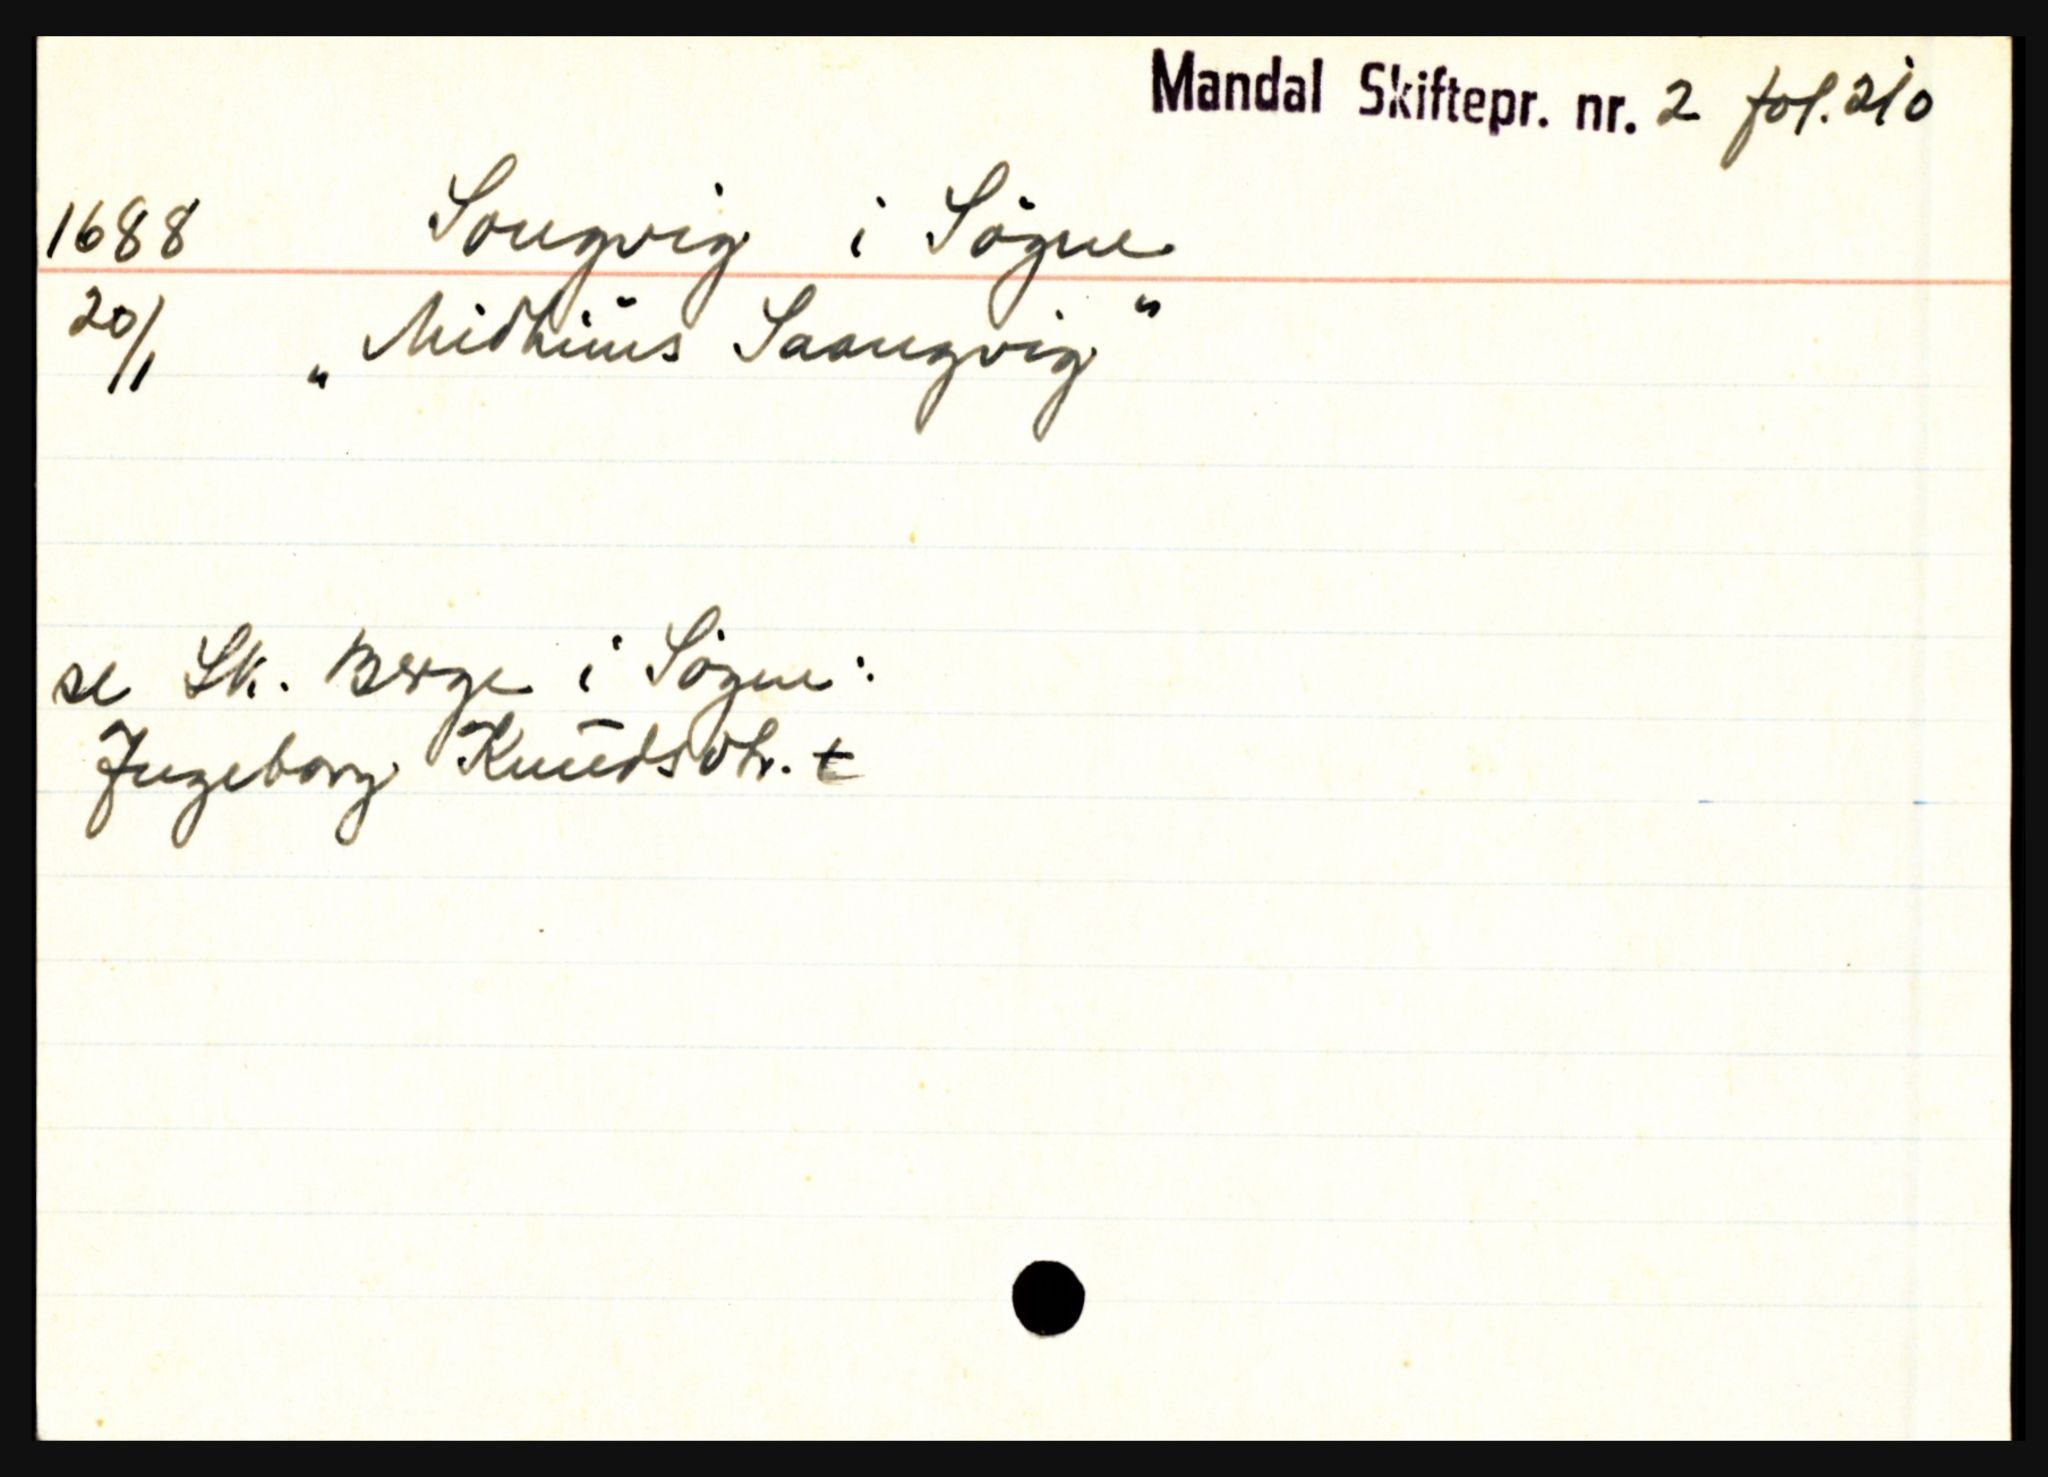 Mandal Skiftepr. nr. 2 fol. 210
1688 Songvig i Søgne
20/1 „Midhuus Saangvig"
se Sk. Berge i Søgne:
Ingeborg Knudsdtr. †